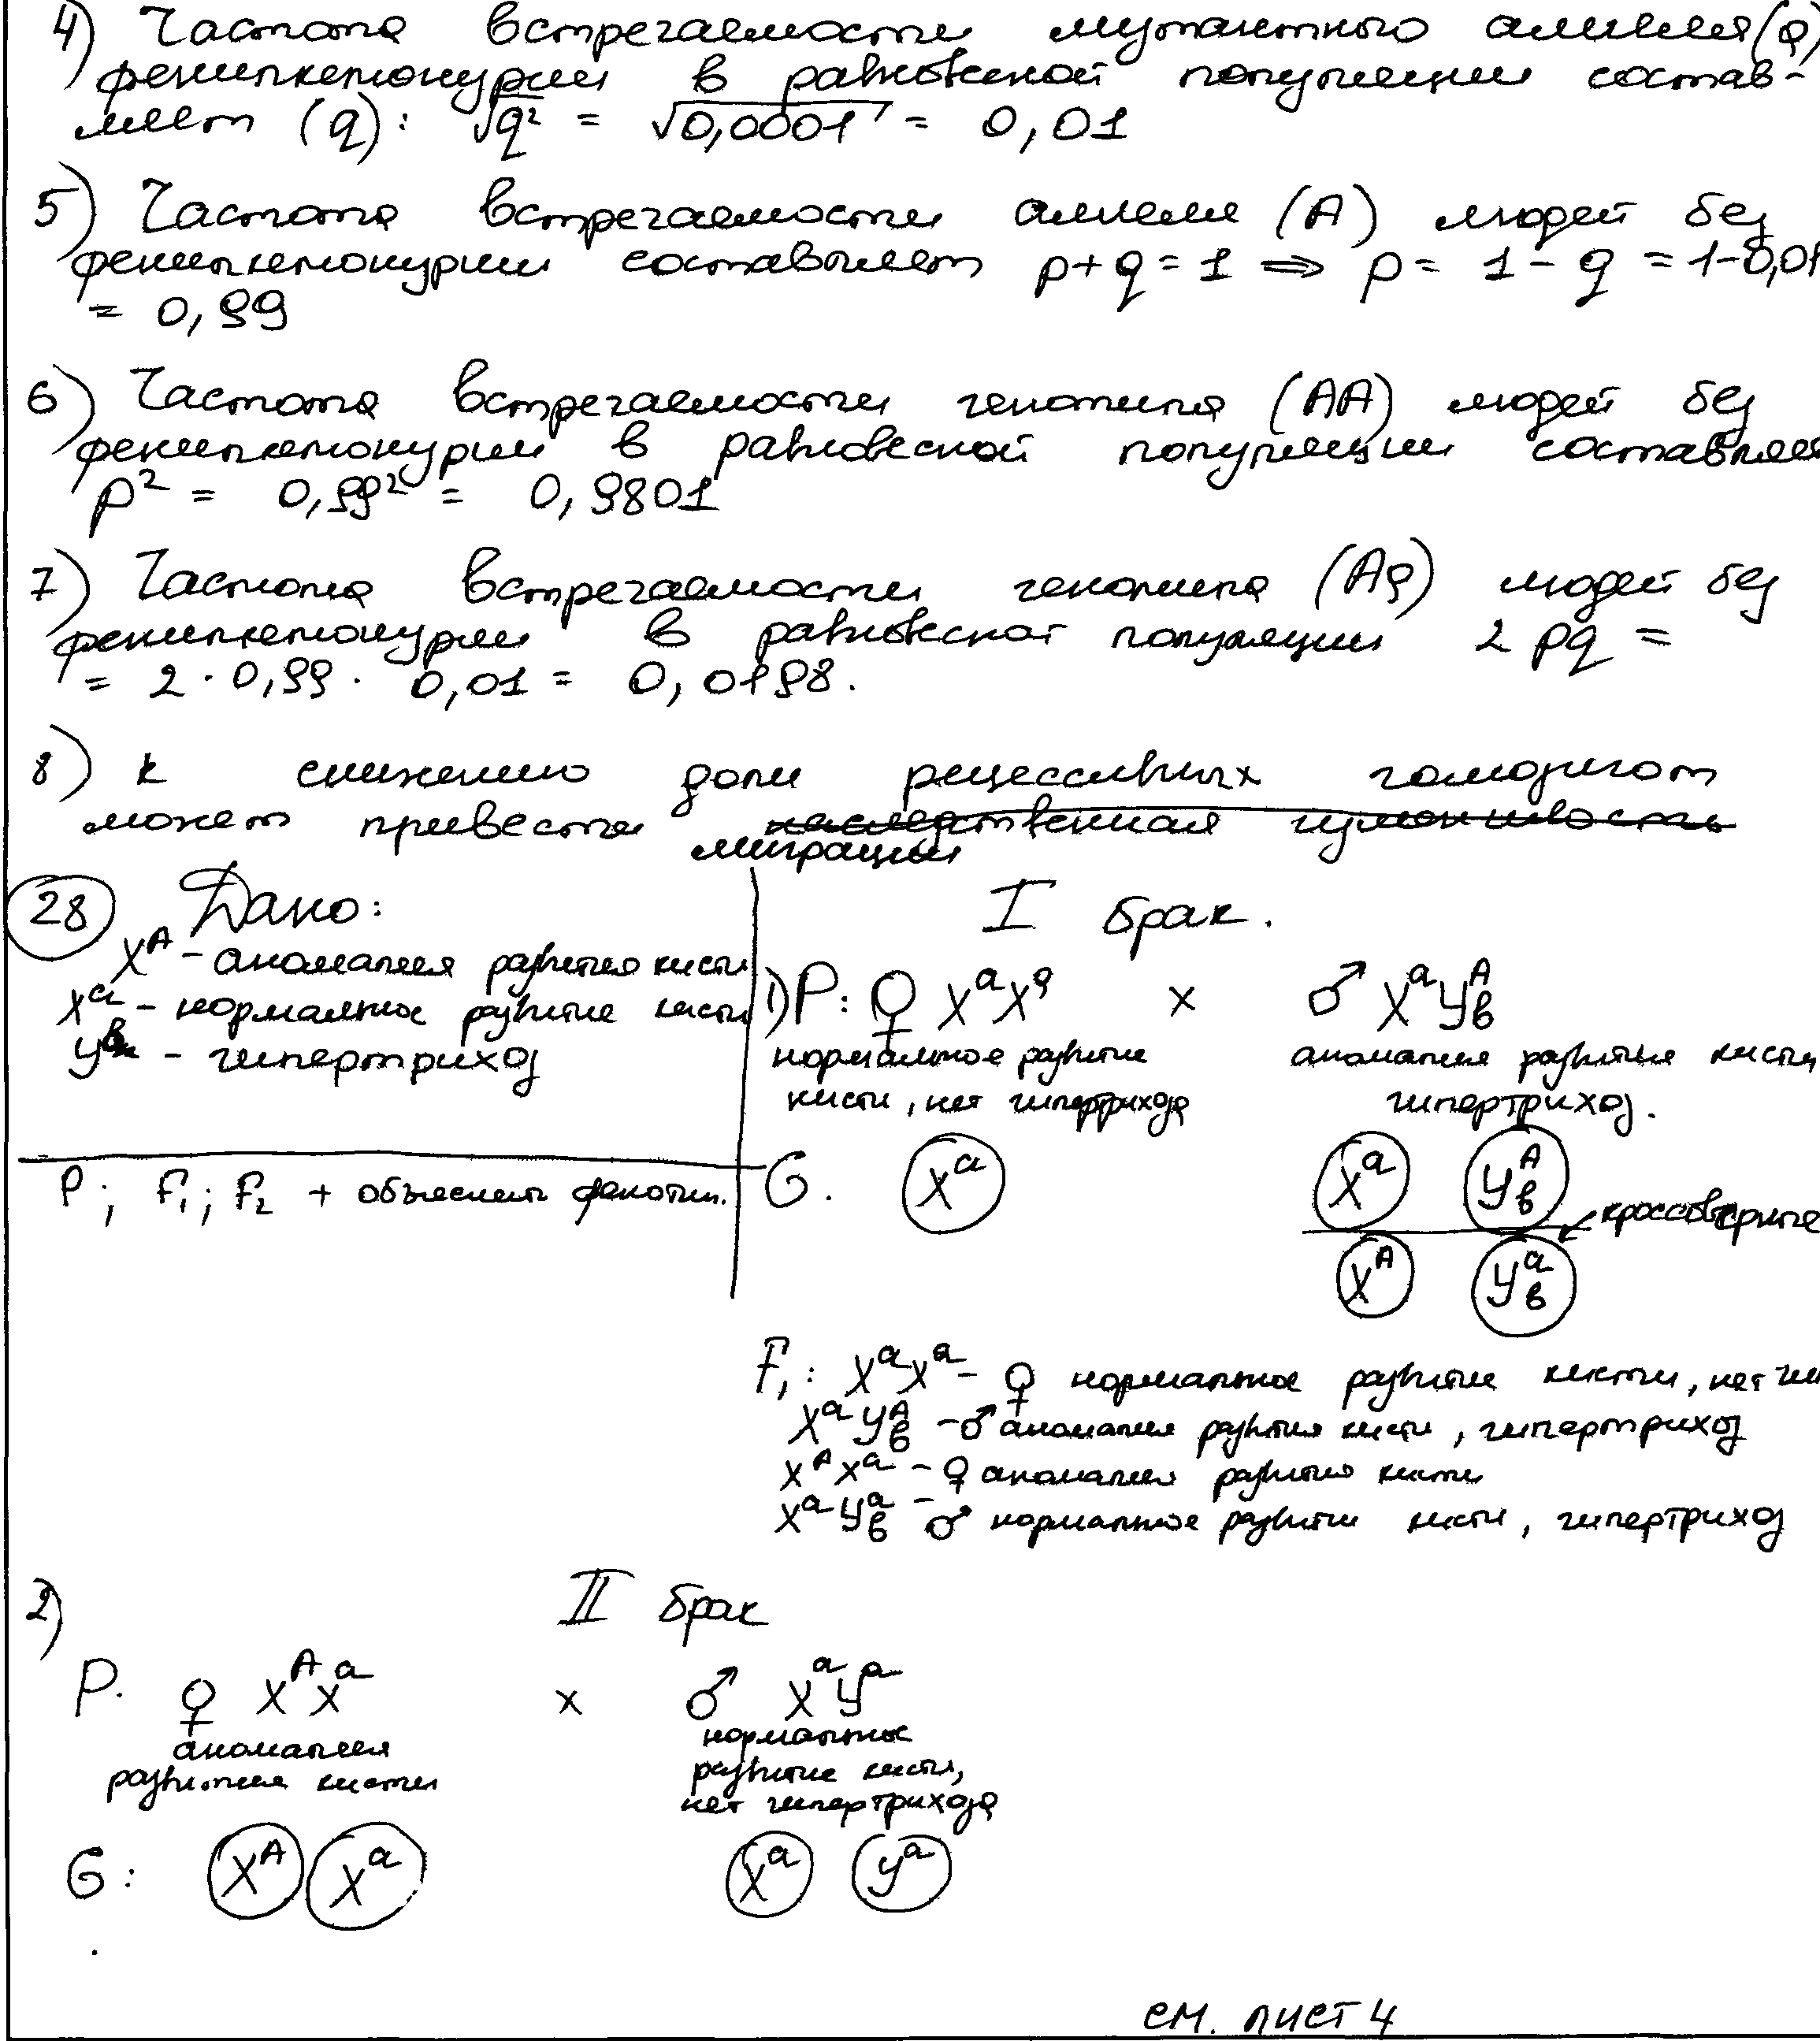 4) Частота встречаемости мутантного аллеля (а)
фенилкетонурии в равновесной популяции состав-
ляет (q): √q² = √0,0001 = 0,01
5) Частота встречаемости аллеля (A) людей без
фенилкетонурии составляет p+q=1 => p= 1-q =1-0,01
= 0,99
6) Частота встречаемости генотипа (AA) людей без
фенилкетонурии в равновесной популяции составляет
p² = 0,99² = 0,9801
7) Частота встречаемости генотипа (Aa) людей без
фенилкетонурии в равновесной популяции 2pq =
= 2 · 0,99 · 0,01 = 0,0198.
8) к снижению доли рецессивных гомозигот
может привести наследственная изменчивость
миграция
28 Дано:
X^A - аномалия развития кисти
X^a - нормальное развитие кисти
Y^в - гипертрихоз
P; F₁; F₂ + объяснить фенотип.
I брак.
1) P: ♀ X^a X^a x ♂ X^a Y_в^A
нормальное развитие кисти, нет гипертрихоза
аномалия развития кисти, гипертрихоз.
G. X^a X^a Y_в^A
кроссовер
X^A Y_в^a
F₁: X^a X^a - ♀ нормальное развитие кисти, нет ги
X^a Y_в^A - ♂ аномалия развития кисти, гипертрихоз
X^A X^a - ♀ аномалия развития кисти
X^a Y_в^a - ♂ нормальное развитие кисти, гипертрихоз
2) II брак
P. ♀ X^A X^a x ♂ X^a Y^a
аномалия развития кисти
нормальное развитие кисти, нет гипертрихоза
G: X^A X^a X^a Y^a
см. лист 4